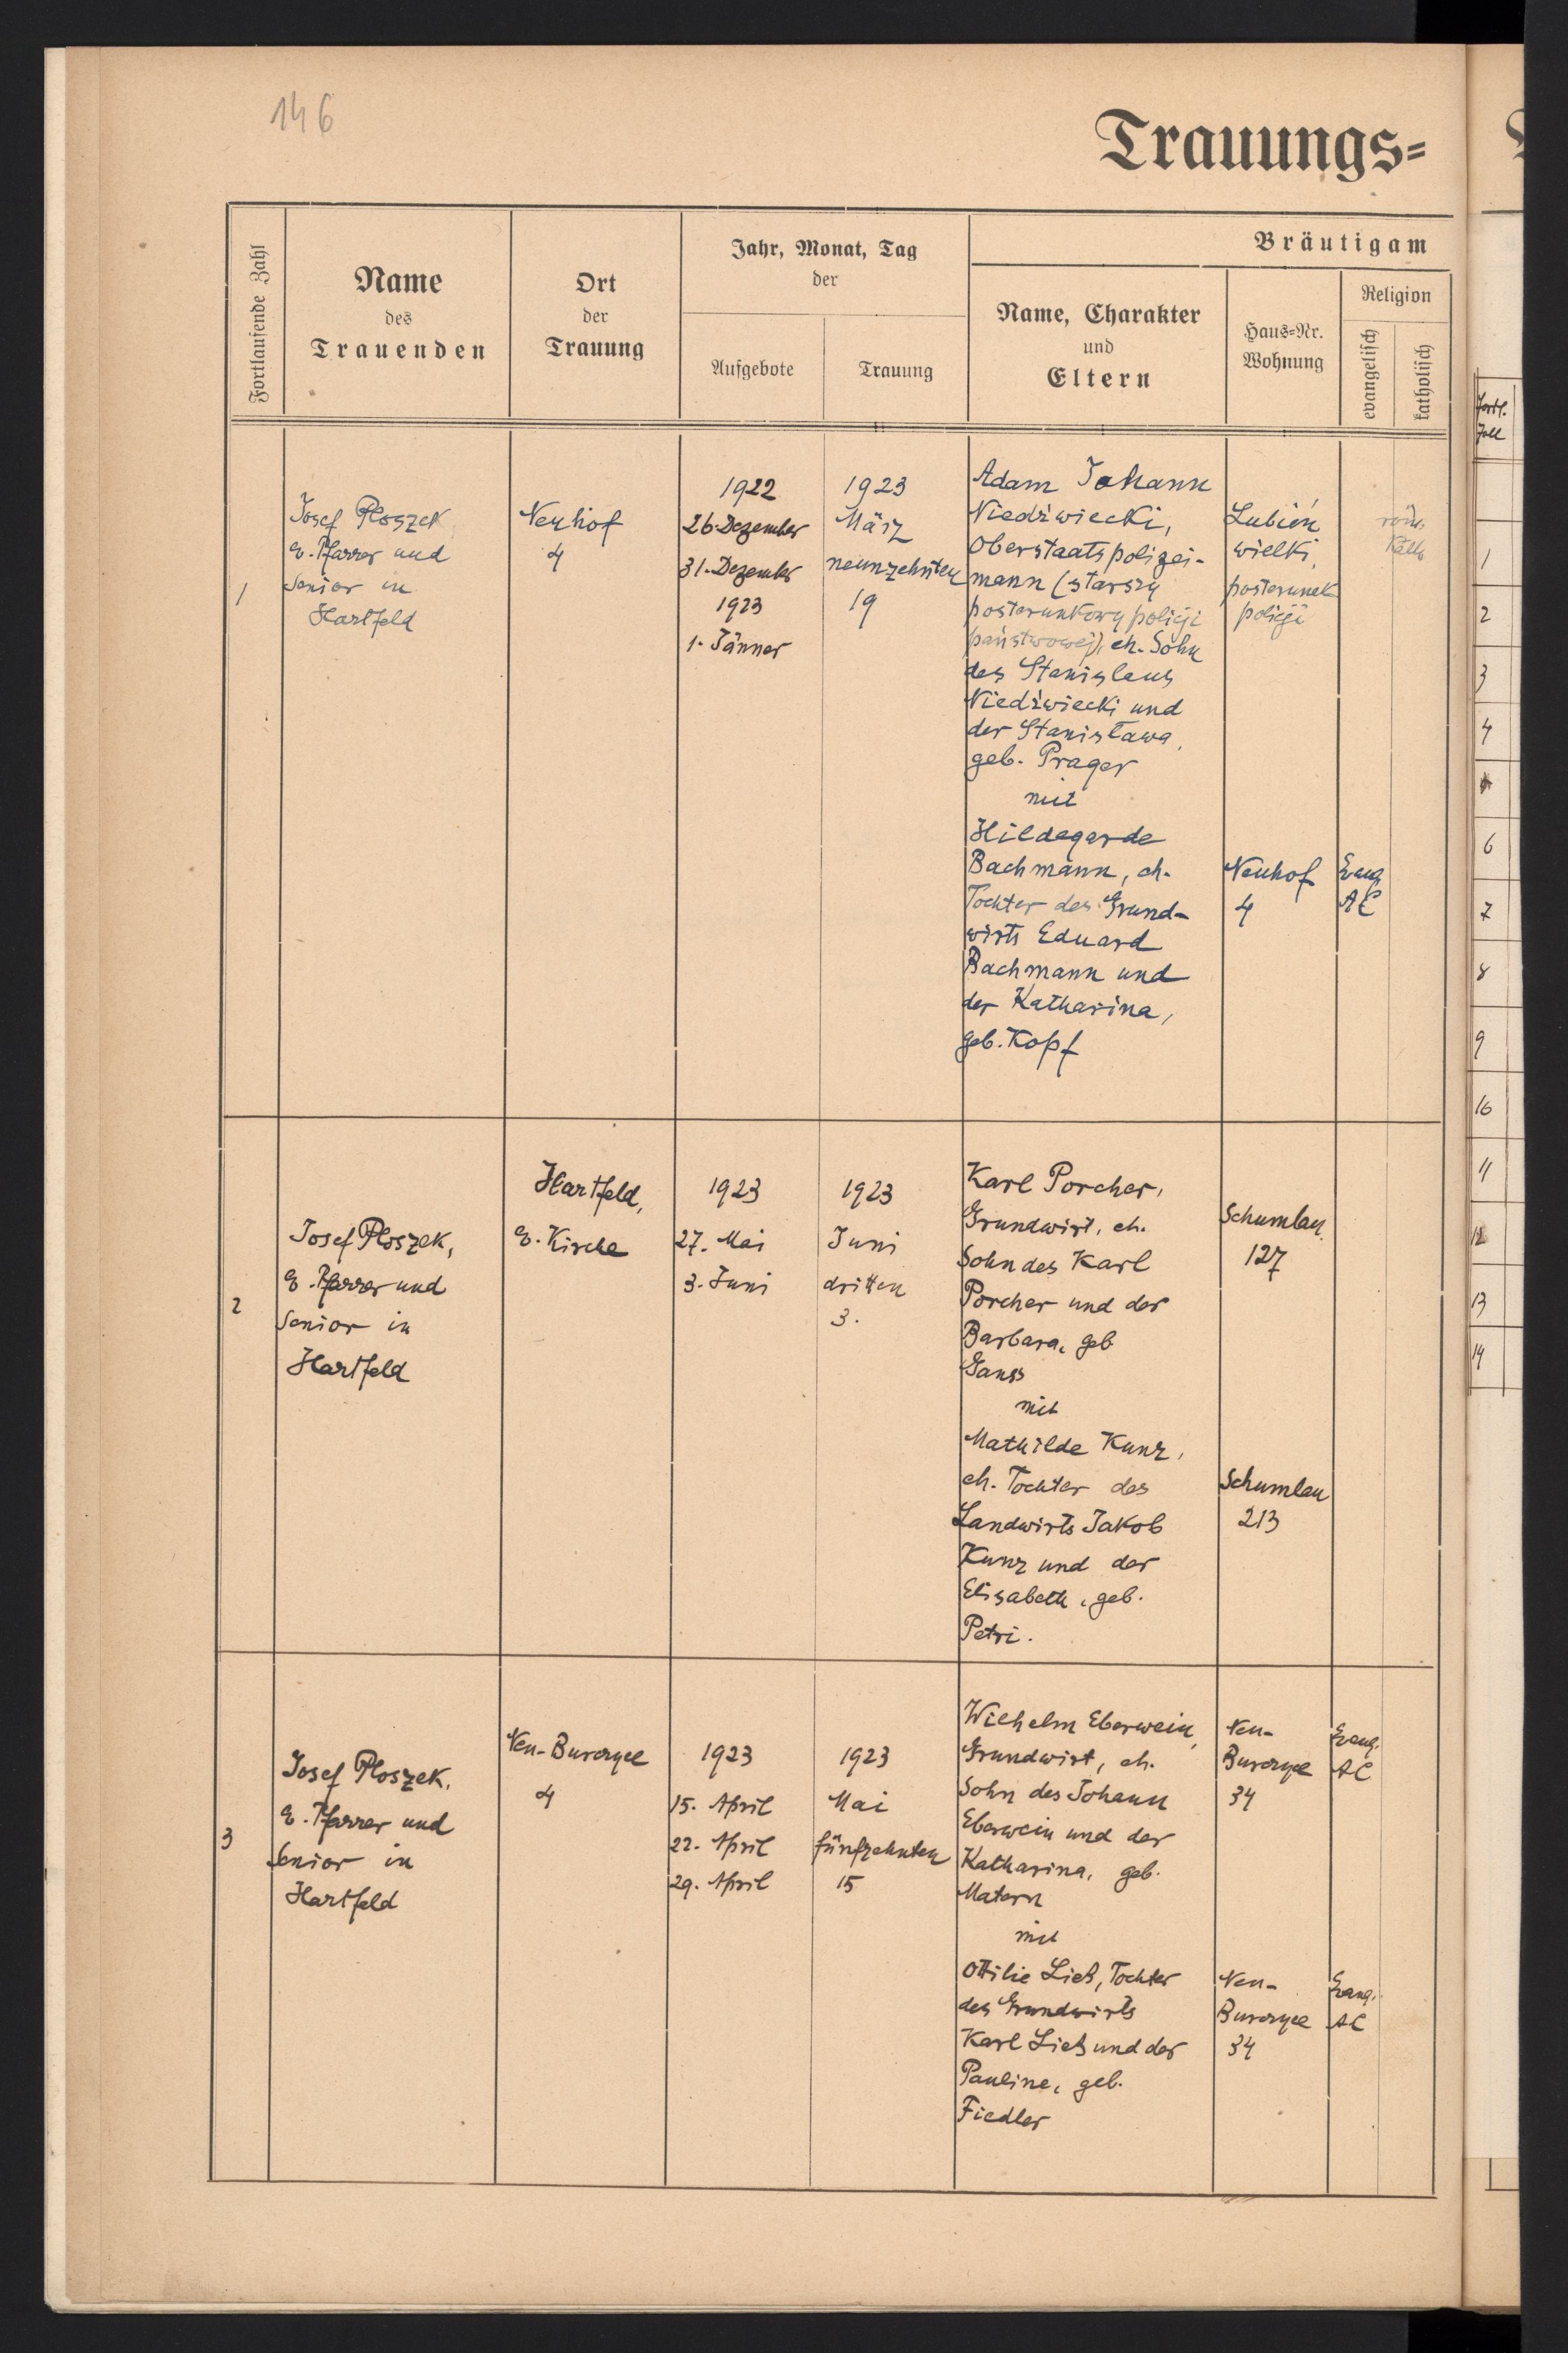 146
Trauungs=
Fortlaufende Zahl
Name
des
Trauenden
Ort
der
Trauung
Jahr, Monat, Tag
der
Aufgebote
Trauung
Bräutigam
Name, Charakter
und
Eltern
Haus=Nr.
Wohnung
Religion
evangelisch
katholisch
1
Josef Ploszek
E. Pfarrer und
Senior in
Hartfeld
Neuhof
4
1922
26. Dezember
31. Dezember
1923
1. Jänner
1923
März
neunzehnten
19
Adam Johann
Niedźwiecki,
Oberstaatspolizei-
mann (starszy
posterunkowy policji
państwowej), eh. Sohn
des Stanislaus
Niedźwiecki und
der Stanisława,
geb. Prager
mit
Hildegarde
Bachmann, eh.
Tochter des Grund-
wirts Eduard
Bachmann und
der Katharina,
geb. Kopf
Lubień
wielki,
posterunek
policji
röm.
Kath
Neuhof
4
Evang
AC
2
Josef Ploszek,
E. Pfarrer und
Senior in
Hartfeld
Hartfeld,
E. Kirche
1923
27. Mai
3. Juni
1923
Juni
dritten
3.
Karl Porcher,
Grundwirt, eh.
Sohn des Karl
Porcher und der
Barbara, geb
Ganss
mit
Mathilde Kunz,
eh. Tochter des
Landwirts Jakob
Kunz und der
Elisabeth, geb.
Petri.
Schumlau
127
Schumlau
213
3
Josef Ploszek,
E. Pfarrer und
Senior in
Hartfeld
Neu-Burczyce
4
1923
15. April
22. April
29. April
1923
Mai
fünfzehnten
15
Wilhelm Eberwein,
Grundwirt, eh.
Sohn des Johann
Eberwein und der
Katharina, geb.
Matern
mit
Ottilie Lieb, Tochter
des Grundwirts
Karl Lieb und der
Pauline, geb.
Fiedler
Neu-
Burczyce
34
Evang.
AC
Neu-
Burczyce
34
Evang.
AC
Fortl.
Zall
1
2
3
4
6
7
8
9
10
11
12
13
14